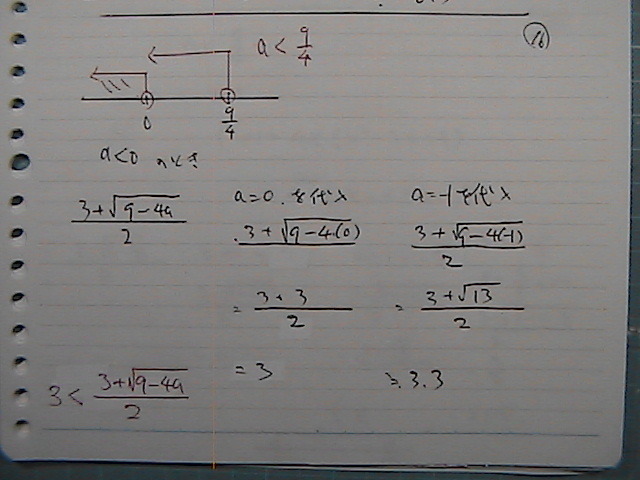 (16)
a < 9/4
0 9/4
a<0 のとき
(3+√(9-4a))/2
a=0 を代入
(3+√(9-4·(0)))
= (3+3)/2
= 3
a=-1を代入
(3+√(9-4(-1)))/2
= (3+√13)/2
≒3.3
3 < (3+√(9-4a))/2